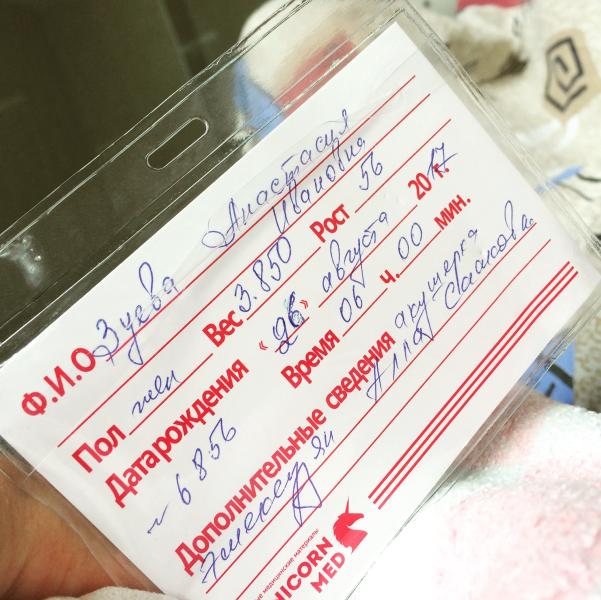 Ф.И.О Зуева Анастасия
Ивановна
Пол жен Вес 3.850 Рост 56
Дата рождения «26» августа 2017 г.
~ 6856 Время 06 ч. 00 мин.
Дополнительные сведения акушерка
Алла
медицинские материалы
UNICORN
MED